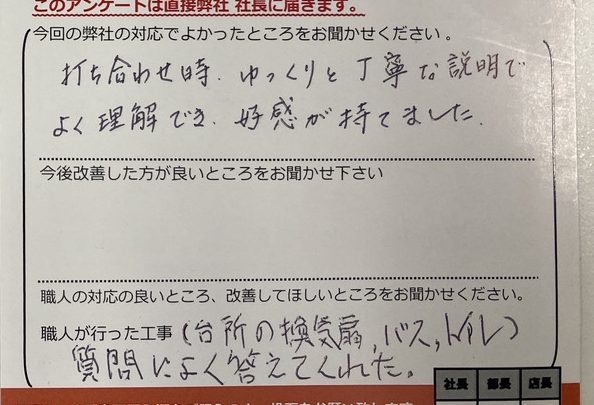 このアンケートは直接弊社 社長に届きます。
今回の弊社の対応でよかったところをお聞かせください。
打ち合わせ時、ゆっくりと丁寧な説明で
よく理解でき、好感が持てました。
今後改善した方が良いところをお聞かせ下さい
職人の対応の良いところ、改善してほしいところをお聞かせください。
職人が行った工事(台所の換気扇,バス,トイレ)
質問によく答えてくれた。
社長 部長 店長